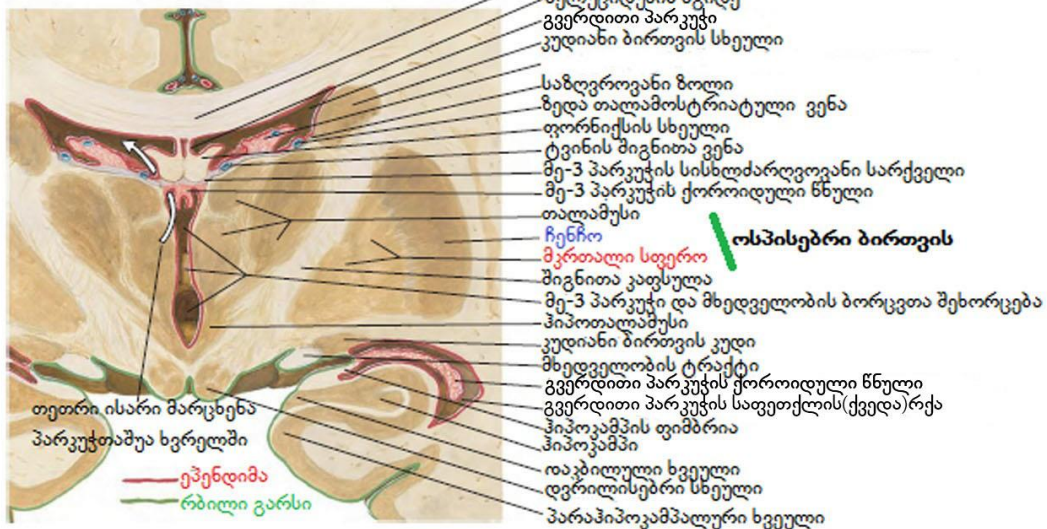 გვერდითი პარკუჭი
კუდიანი ბირთვის სხეული
საზღვროვანი ზოლი
ზედა თალამოსტრიატული ვენა
ფორნიქსის სხეული
ტვინის შიგნითა ვენა
მე-3 პარკუჭის სისხლძარღვოვანი სარქველი
მე-3 პარკუჭის ქოროიდული წნული
თალამუსი
ჩენჩო
მკრთალი სფერო
ოსპისებრი ბირთვის
შიგნითა კაფსულა
მე-3 პარკუჭი და მხედველობის ბორცვთა შეხორცება
ჰიპოთალამუსი
კუდიანი ბირთვის კუდი
მხედველობის ტრაქტი
გვერდითი პარკუჭის ქოროიდული წნული
გვერდითი პარკუჭის საფეთქლის(ქვედა)რქა
ჰიპოკამპის ფიმბრია
ჰიპოკამპი
დაკბილული ხვეული
დვრილისებრი სხეული
პარაჰიპოკამპალური ხვეული
თეთრი ისარი მარცხენა
პარკუჭთაშუა ხვრელში
ეპენდიმა
რბილი გარსი